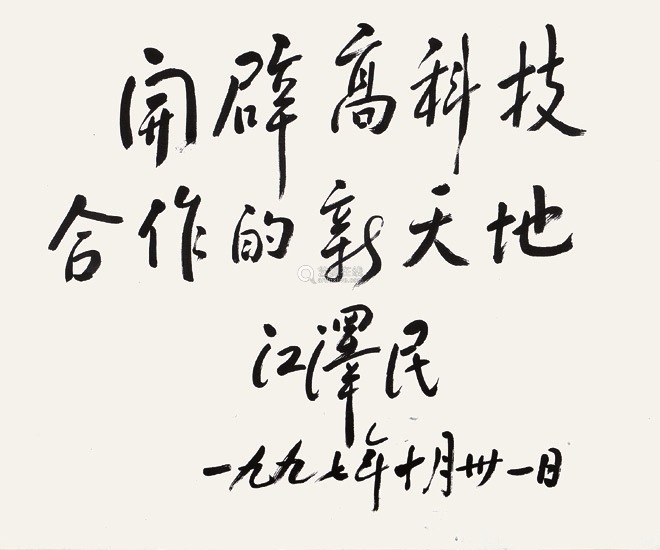 開辟高科技
合作的新天地
江澤民
一九九七年十月卅一日